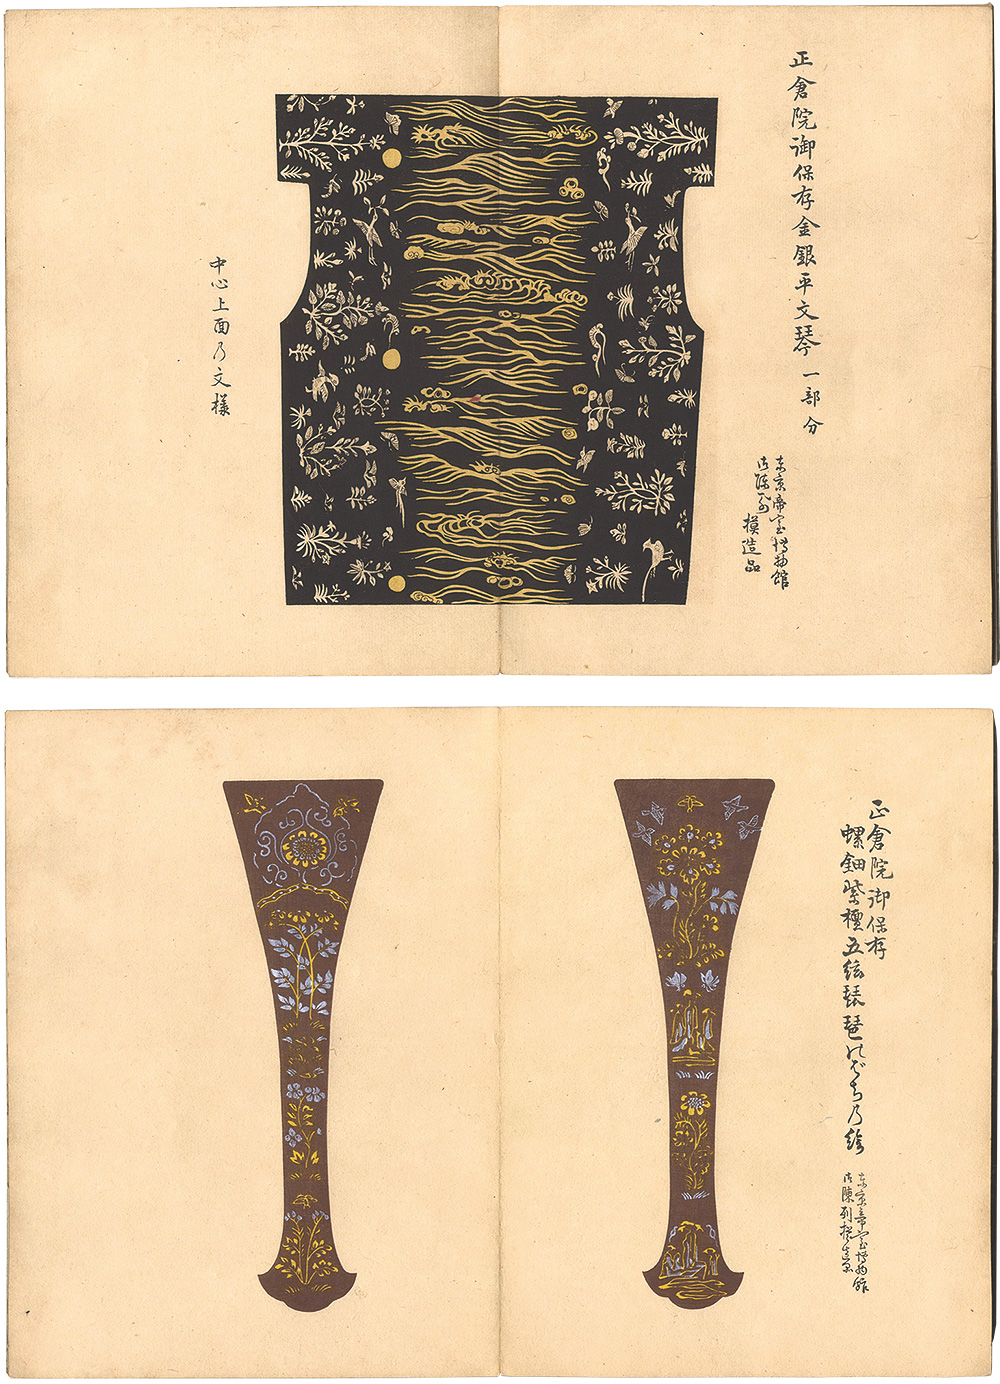 正倉院御保存金銀平文琴 一部分
東京帝室博物館
御陳列 模造品
中心上面乃文様
正倉院御保存
螺鈿紫檀五絃琵琶のばち乃絵
東京帝室博物館
御陳列模造品